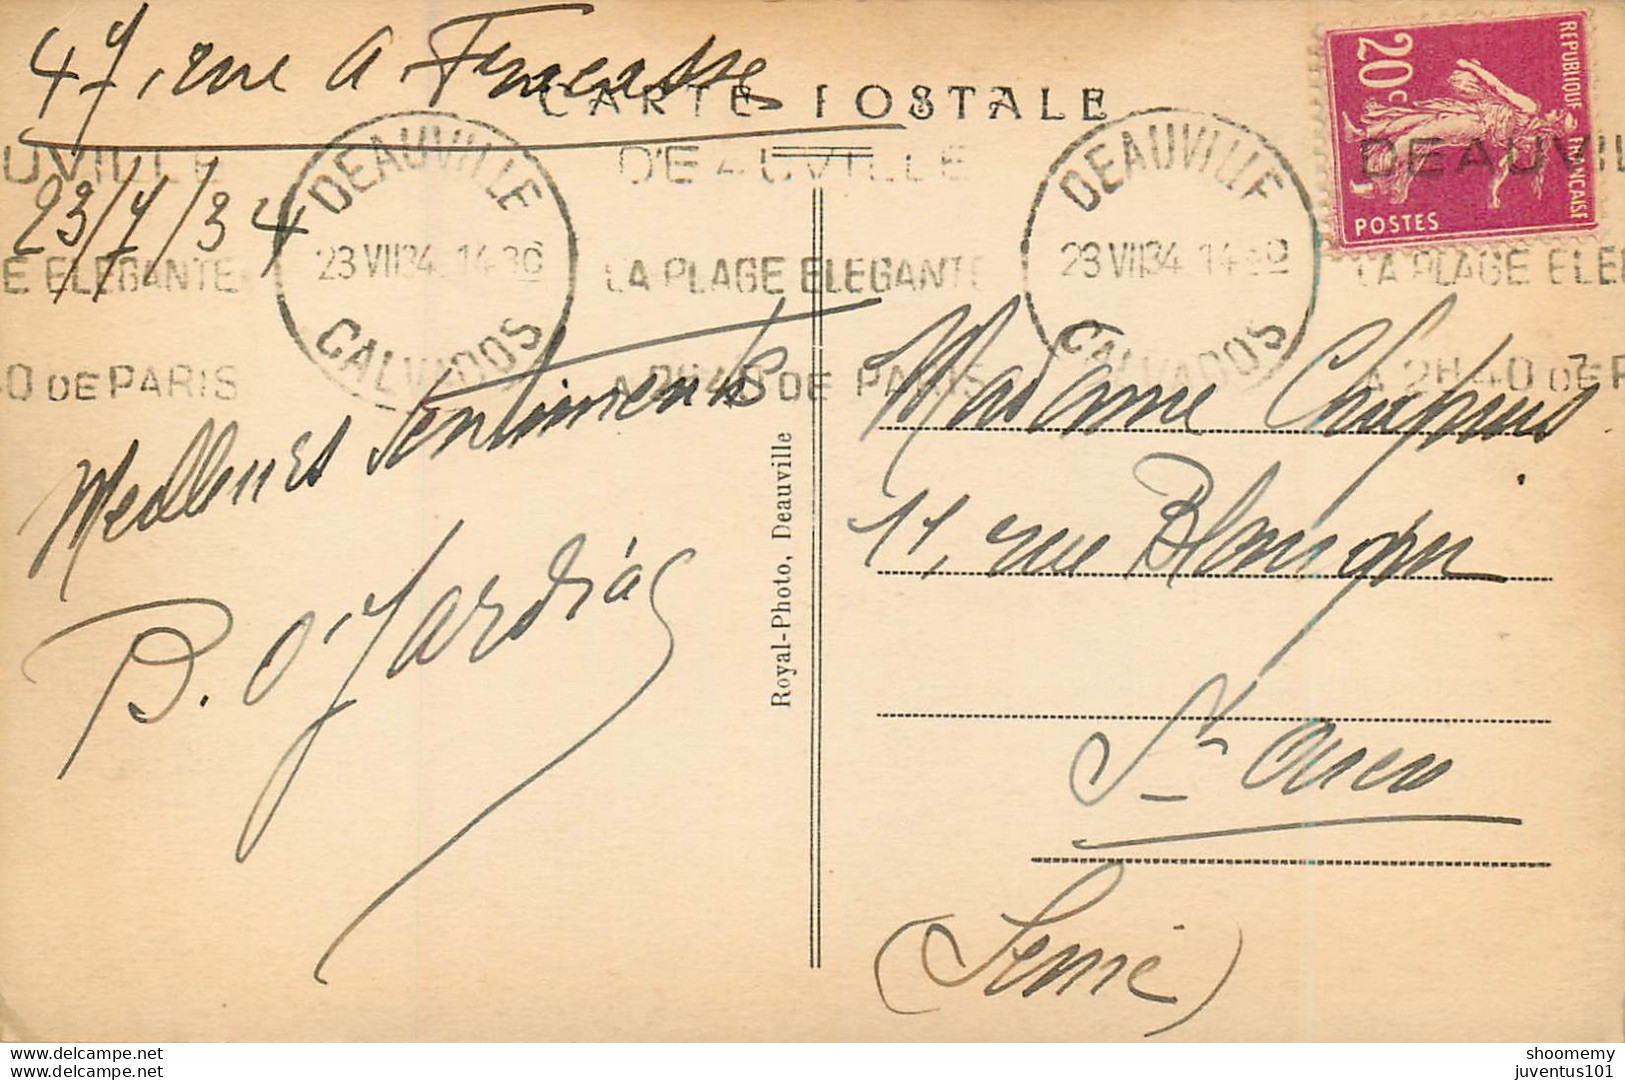 47, rue A. Fracasse
CARTE POSTALE
23/7/34
DEAUVILLE
23 VII 34 14 30
CALVADOS
DEAUVILLE
LA PLAGE ELEGANTE
A 2H40 DE PARIS
DEAUVILLE
23 VII 34 14 30
CALVADOS
DEAUVIL
LA PLAGE ELEG
A 2H40 DE P
UVILLE
E ELEGANTE
40 DE PARIS
REPUBLIQUE FRANCAISE
20c
POSTES
Meilleures sentiments
B. O'Jardias
Royal-Photo, Deauville
Madame Chapuis
11, rue
St Ouen
(Seine)
shoomemy
juventus101
shoomemy
juventus101